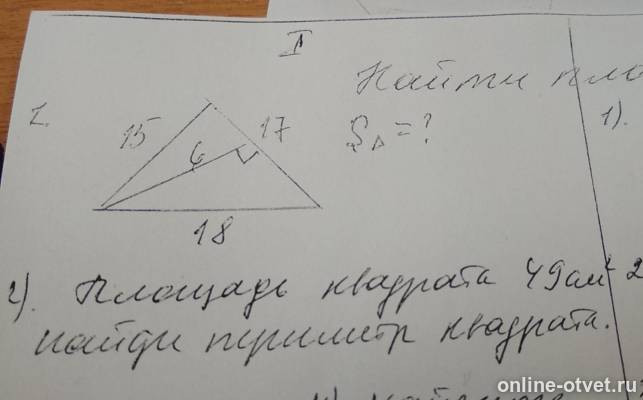 I
Найти
1.
15
17
6
S△=?
1).
18
2). Площадь квадрата 49 см² 2
найди периметр квадрата.
online-otvet.ru